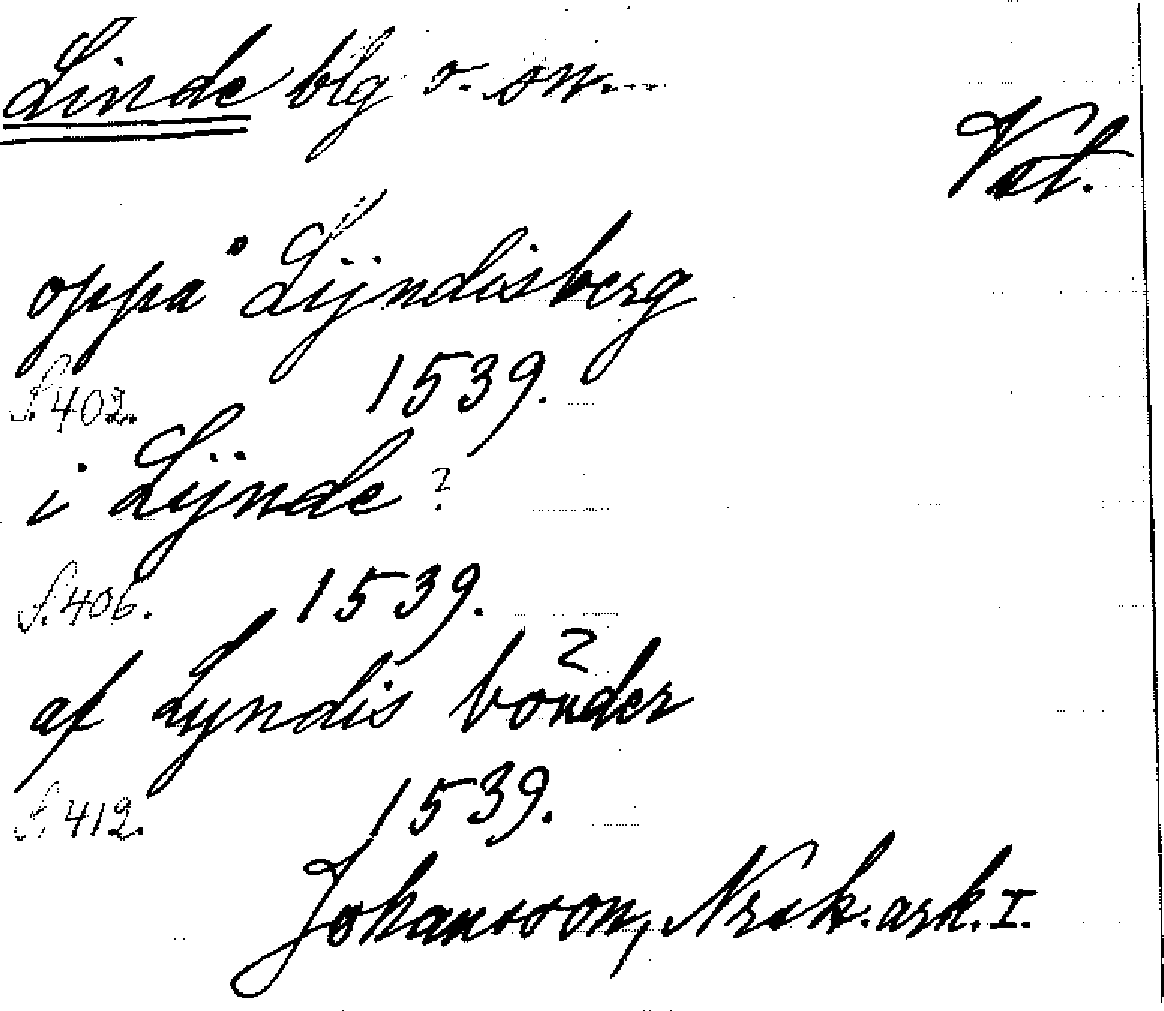 Linde blg o. sn.
Vst.
oppå Lÿndisberg
S. 402. 1539.
i Lÿnde ?
S. 406. 1539.
af Lyndis bönder
S. 412. 1539.
Johansson, Nrsk. ark. I.